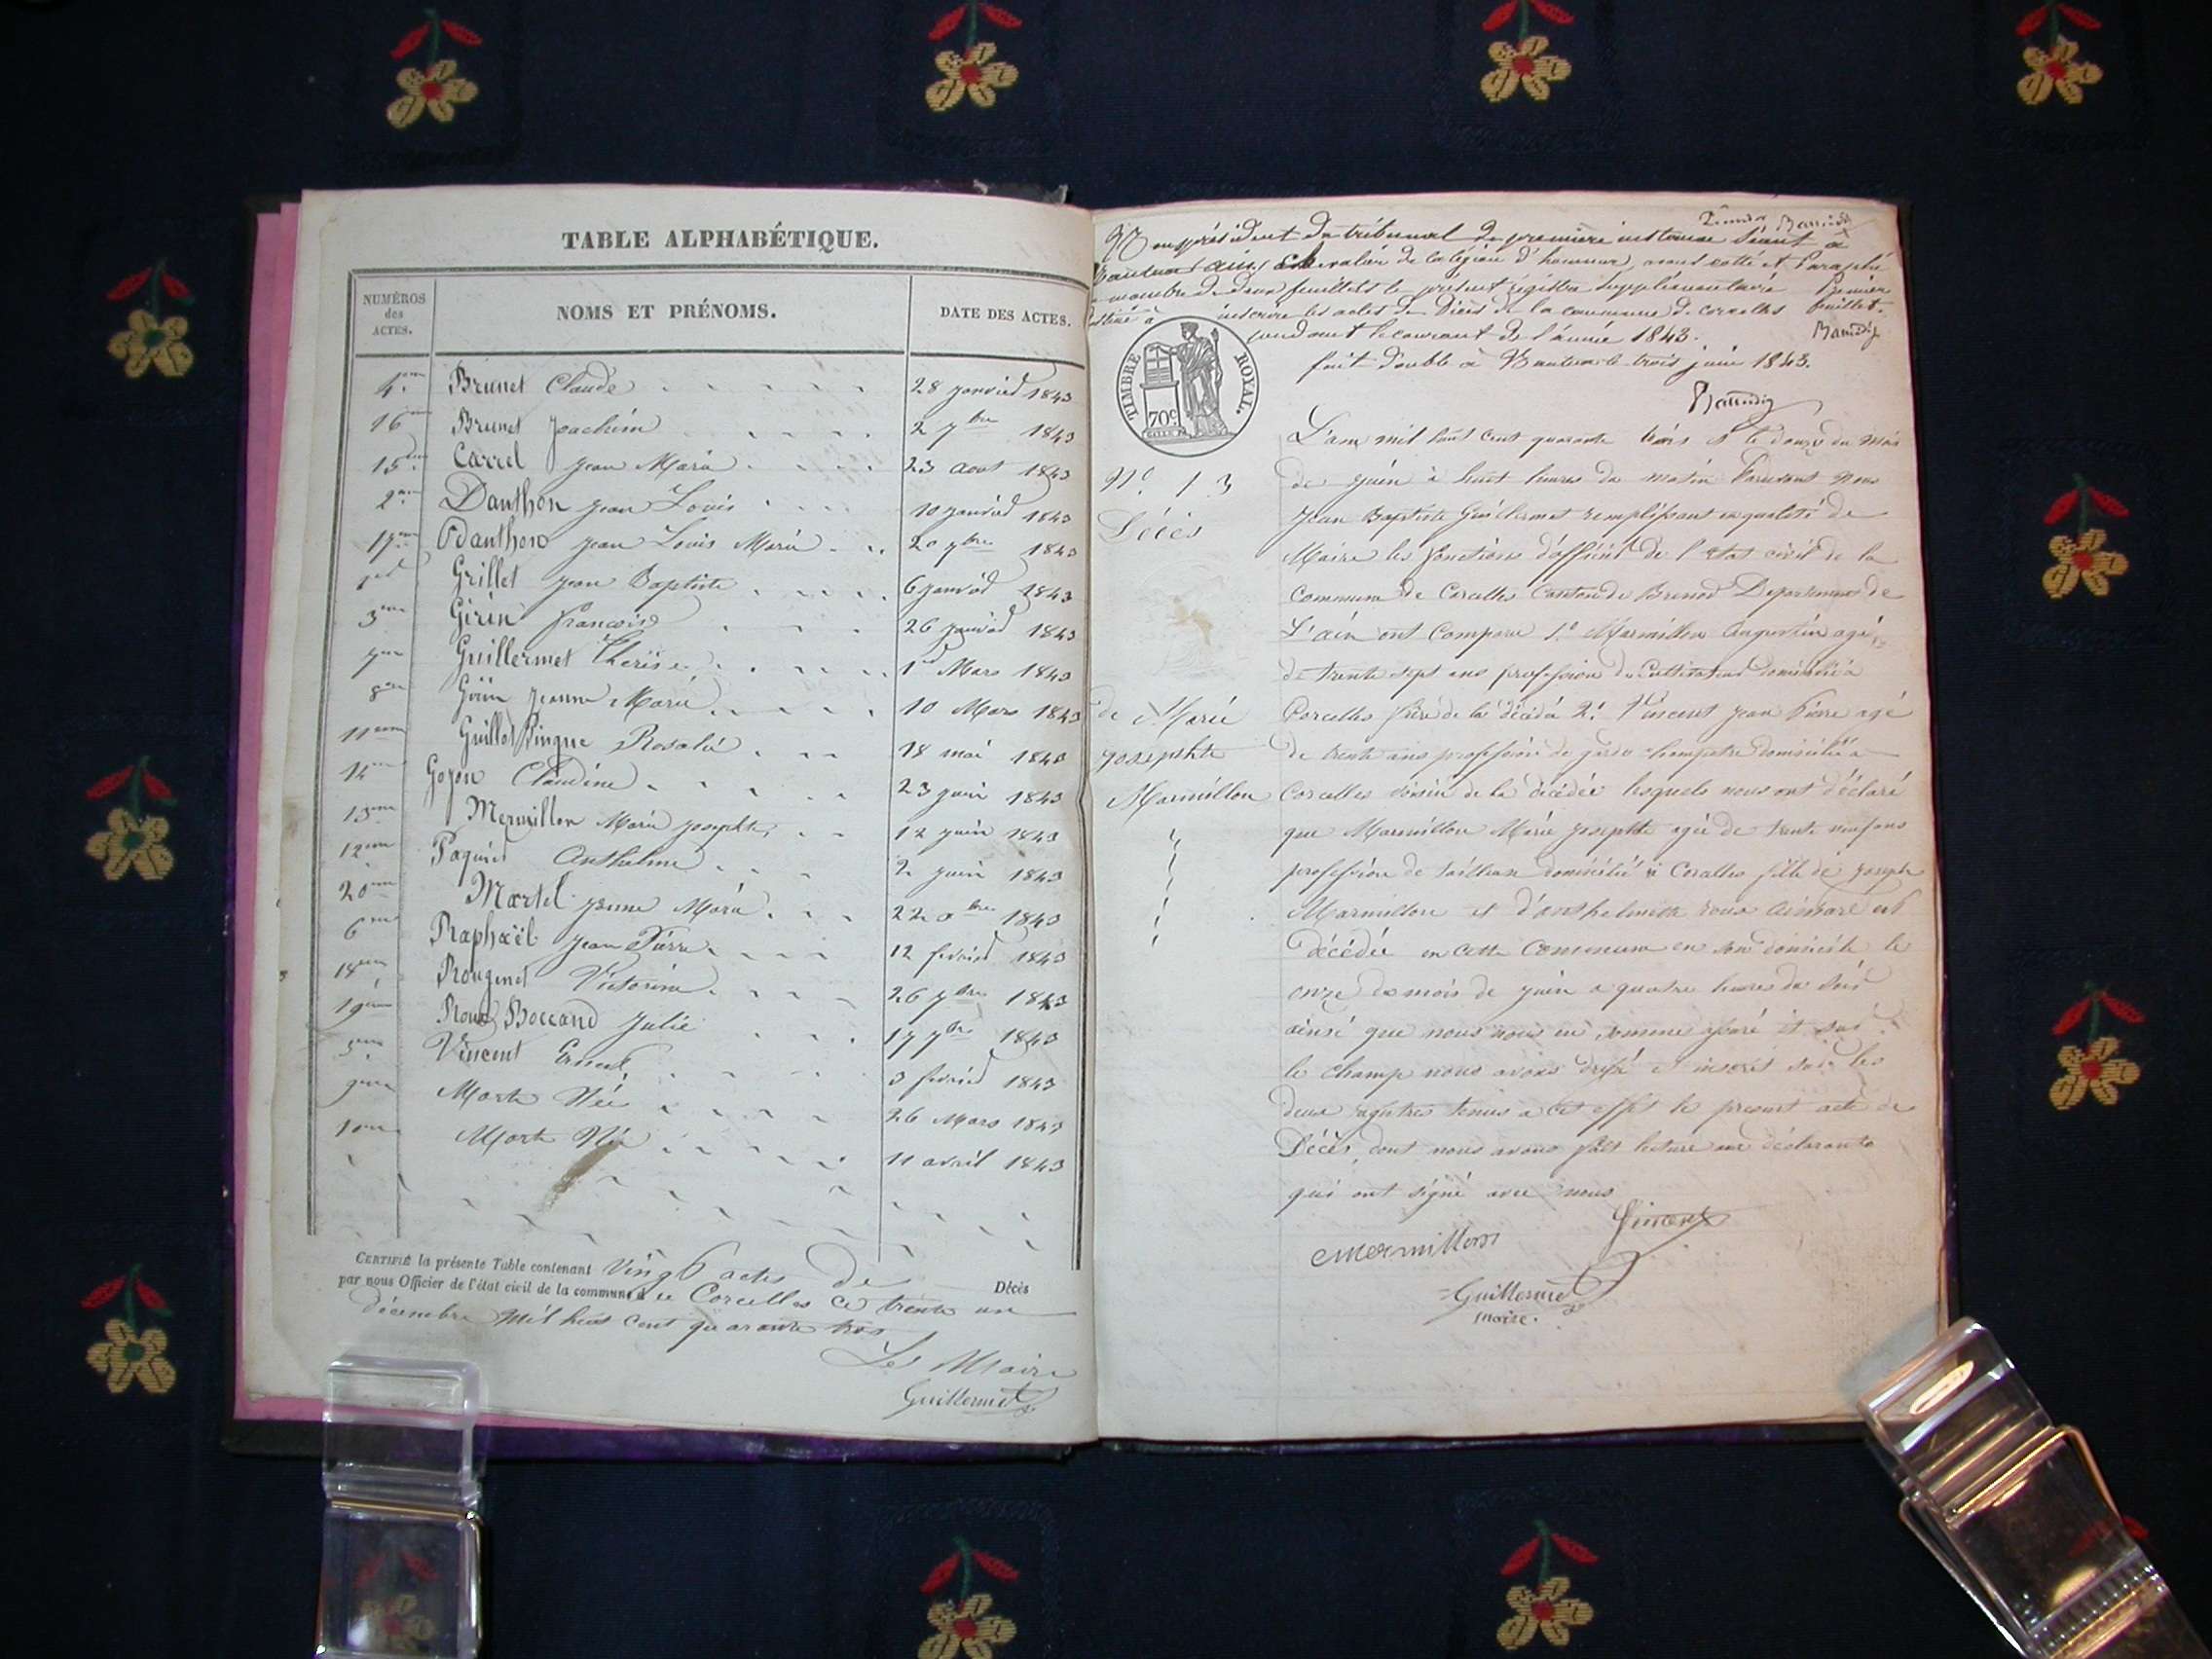 TABLE ALPHABÉTIQUE.
NUMÉROS des ACTES.
NOMS ET PRÉNOMS.
DATE DES ACTES.
4eme Brunet Claude 28 janvied 1843
16eme Brunet Joachim 2 7bre 1843
15eme Carrel Jean Marie 23 Aout 1843
2eme Danthon Jean Louis 10 janvied 1843
17eme Odanthon Jean Louis Marie 20 7bre 1843
1ed Grillet Jean Baptiste 6 janvied 1843
3eme Girin francois 26 janvied 1843
7eme Guillermet Therése 1ed Mars 1843
8eme Jeanne Marie 10 Mars 1843
11eme Guillot Pingue Rosalie 18 mai 1843
14eme Goyon Claudine 23 juin 1843
13eme Mermillon Marie Josephte 12 juin 1843
12eme Paquied Anthelme 2 juin 1843
20eme Martel Jeanne Marie 22 bre 1843
6eme Raphaël Jean Pierre 12 fevried 1843
18eme Rougenet Victorine 26 7bre 1843
19éme Roux Boccand Julie 17 7bre 1843
5eme Vincent Ernest 3 fevried 1843
9eme Morte Née 26 Mars 1843
10eme Morte Née 11 avril 1843
CERTIFIÉ la présente Table contenant Vingt actes de Décès
par nous Officier de l'état civil de la commune de Corcelles ce trente un
décembre Mil huit cent quarante trois
Les Maire
Guillermet
Nous président du tribunal de première instance séant à
Nantua (ain) Chevalier de la légion d'honneur, avons cotté et Paraphé
nombre de deux feuillets le présent régistre supplémentaire
destiné à inscrire les actes de Décès de la commune de corcelles
pendant le courant de l'année 1843.
Premier
feuillet.
fait double à Nantua le trois juin 1843.
TIMBRE ROYAL.
70c
L'an mil huit cent quarante trois et le douze du mois
No. 13
de juin à huit heures du matin Pardevant Nous
Décès
Jean Baptiste Guillermet remplissant en qualité de
Maire les fonctions d'officied de l'état civil de la
Commune de Corcelles Canton de Brenod Departement de
L'ain ont Comparu 1.o Marmillon Augustin agé
de trente sept ans profession de Cultivateur domicilié à
de Marie
Corcelles frère de la décédé 2.o Vincent Jean Pierre agé
Josephte
de trente ans profession de garde champetre domicilié à
Marmillon
Corcelles voisin de la décédée lesquels nous ont déclaré
que Marmillon Marie Josephte agée de trente neuf ans
profession de tailleuse domicilié à Corcelles fille de Joseph
Marmillon et d'anthelmette roux est
décédée en cette Commune en son domicile le
onze du mois de juin a quatre heures du soir
ainsi que nous nous en somme et sur
le champ nous avons dréssé et inscrit sur les
deux registres tenus a cet effet le présent acte de
Décès, dont nous avons fait lecture aux déclarants
qui ont signé avec nous
Vincent
Mermillon
Guillermet
maire.